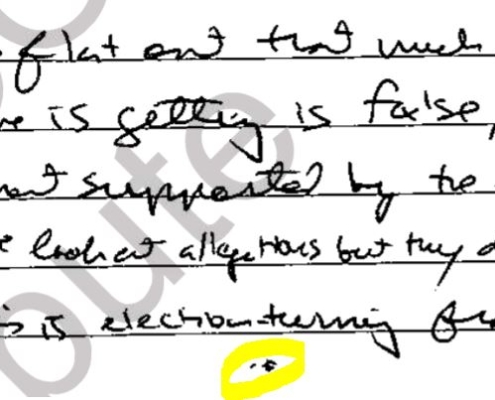 flat out that much
is getting is false,
not supported by the
look at allegations but they
is is election-turning